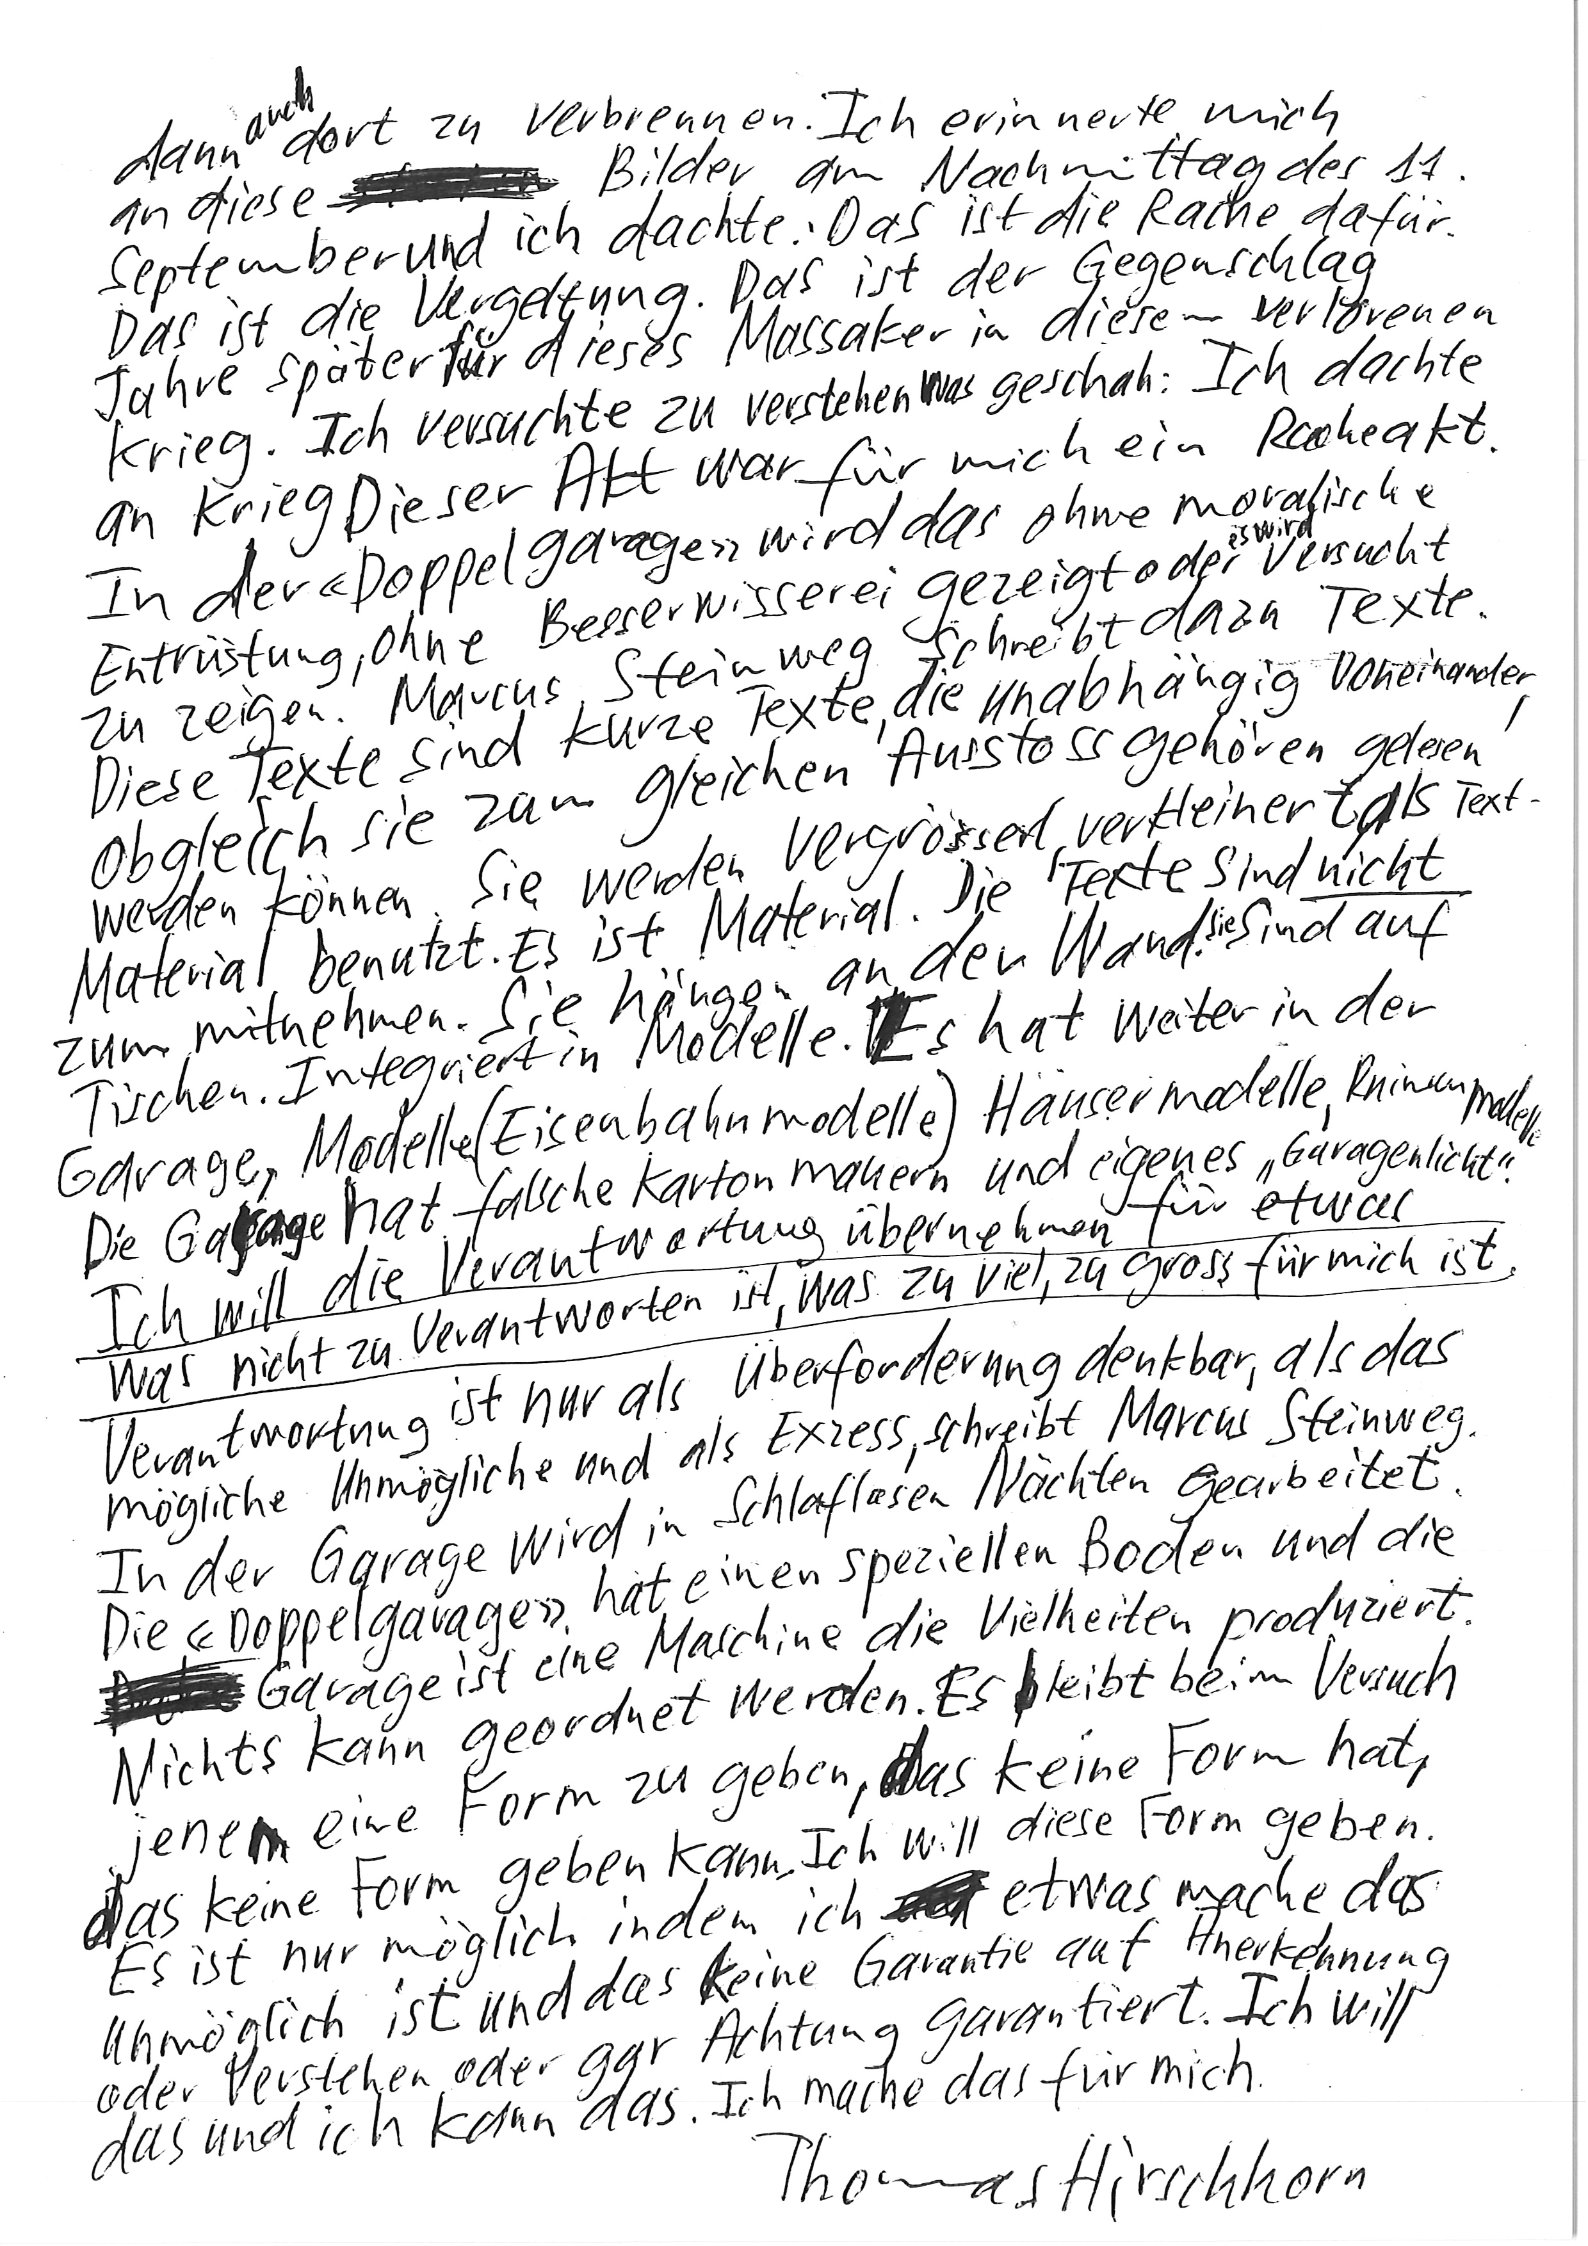 dann auch dort zu verbrennen. Ich erinnerte mich
an diese Bilder am Nachmittag des 11.
September und ich dachte: Das ist die Rache dafür.
Das ist die Vergeltung. Das ist der Gegenschlag
Jahre später für dieses Massaker in diesem verlorenen
Krieg. Ich versuchte zu verstehen was geschah: Ich dachte
an Krieg Dieser Akt war für mich ein Racheakt.
In der «Doppelgarage» wird das ohne moralische
Entrüstung, ohne Besserwisserei gezeigt oder es wird versucht
zu zeigen. Marcus Steinweg schreibt dazu Texte.
Diese Texte sind kurze Texte, die unabhängig voneinander,
obgleich sie zum gleichen Ausstoss gehören gelesen
werden können. Sie werden vergrössert, verkleinert als Text-
Material benutzt. Es ist Material. Die Texte sind nicht
zum mitnehmen. Sie hängen an den Wand. sie sind auf
Tischen. Integriert in Modelle. Es hat weiter in der
Garage, Modelle (Eisenbahnmodelle) Häusermodelle, Ruinenmodelle
Die Garage hat falsche Kartonmauern und eigenes „Garagenlicht“.
Ich will die Verantwortung übernehmen für etwas
was nicht zu verantworten ist, was zu viel, zu gross für mich ist.
Verantwortung ist nur als Überforderung denkbar, als das
mögliche Unmögliche und als Exzess, schreibt Marcus Steinweg.
In der Garage wird in schlaflosen Nächten gearbeitet.
Die «Doppelgarage» hat einen speziellen Boden und die
Garage ist eine Maschine die Vielheiten produziert.
Nichts kann geordnet werden. Es bleibt beim Versuch
jenem eine Form zu geben, das keine Form hat,
das keine Form geben kann. Ich will diese Form geben.
Es ist nur möglich indem ich etwas mache das
unmöglich ist und das keine Garantie auf Anerkennung
oder Verstehen oder gar Achtung garantiert. Ich will
das und ich kann das. Ich mache das für mich.
Thomas Hirschhorn